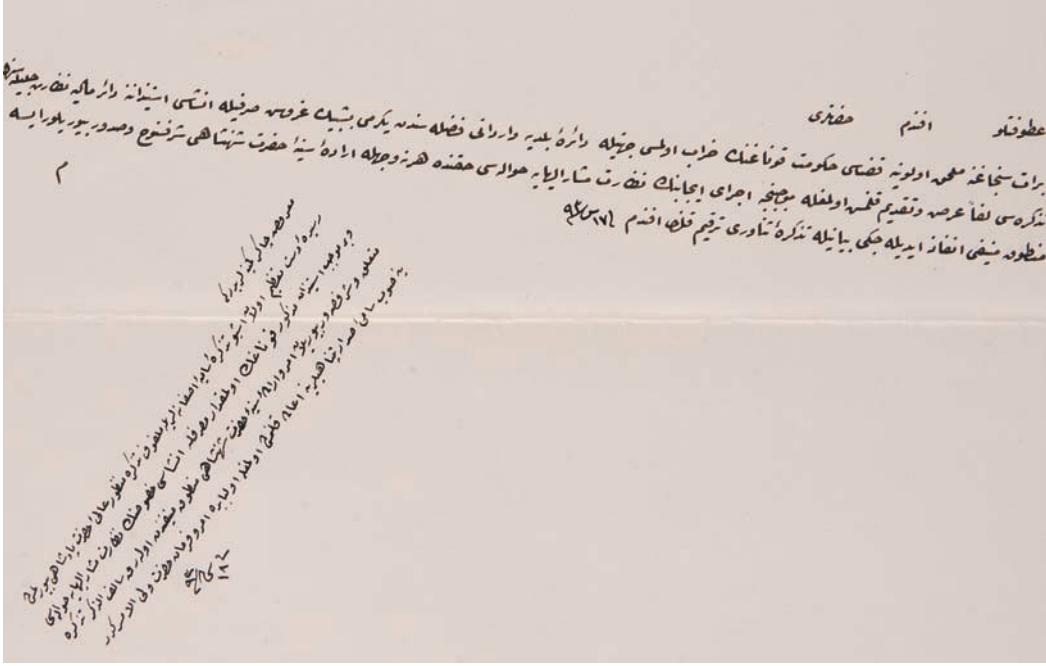 عطوفتلو افندم حضرتلری
برات سنجاغنه ملحق اولونیه قضاسی حکومت قوناغنك خراب اولمسی جهتیله دائرهٔ بلدیه وارداتی فضله سندن یکرمی بشبیك غروش صرفیله انشاسی استیذاننه دائر مالیه نظارت جلیله سنك
تذکره سی لفاً عرض وتقدیم قلنمش اولمغله موجبنجه اجرای ایجابنك نظارت مشار الیهایه حواله سی حقنده هر نه وجهله ارادهٔ سنیهٔ حضرت شهنشاهی شرفسنوح وصدور بیوریلور ایسه
منطوق منیفی انفاذ ایدیله جکی بیانیله تذکرهٔ ثناوری ترقیم قلندی افندم ١٧
م
معروض چاکر کمینه لریدر که
رسیدهٔ دست تعظیم اولان اشبو تذکرهٔ سامیهٔ آصفانه لریله ملفوف تذکره منظور عالی حضرت پادشاهی بیورلمش
وبر موجب استیذان مذکور قوناغك اولمقدار مصرفله انشاسی خصوصنك نظارت مشار الیهایه حواله سی
متعلق وشرفصدور بیوریلان امر وارادهٔ سنیهٔ حضرت شهنشاهی منطوق منیفندن اوله رق سالف الذکر تذکره
ینه صوب سامی صدارتپناهیلرینه اعاده قلنمش اولمغله اولبابده امر وفرمان حضرت ولی الامرکدر
١٨